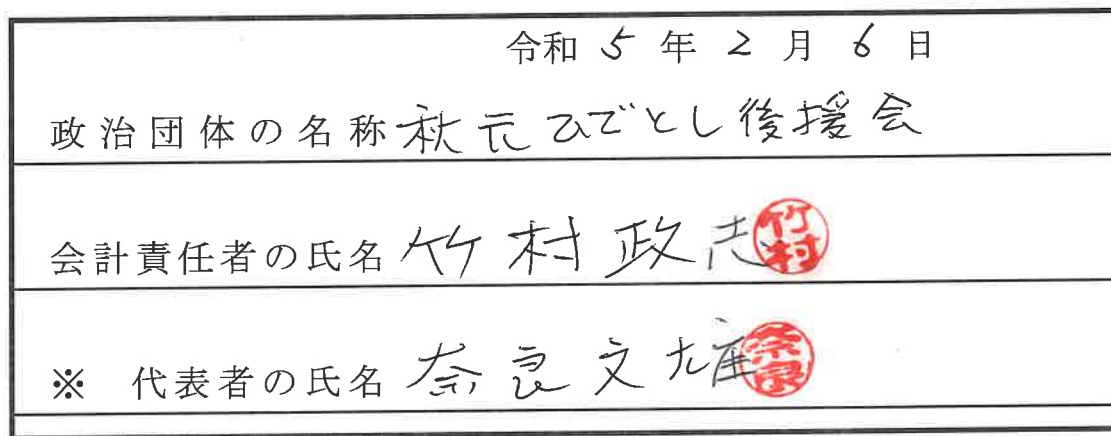 令和 5 年 2 月 6 日
政治団体の名称 秋元ひでとし後援会
会計責任者の氏名 竹村政志 竹村
※ 代表者の氏名 奈良文雄 奈良